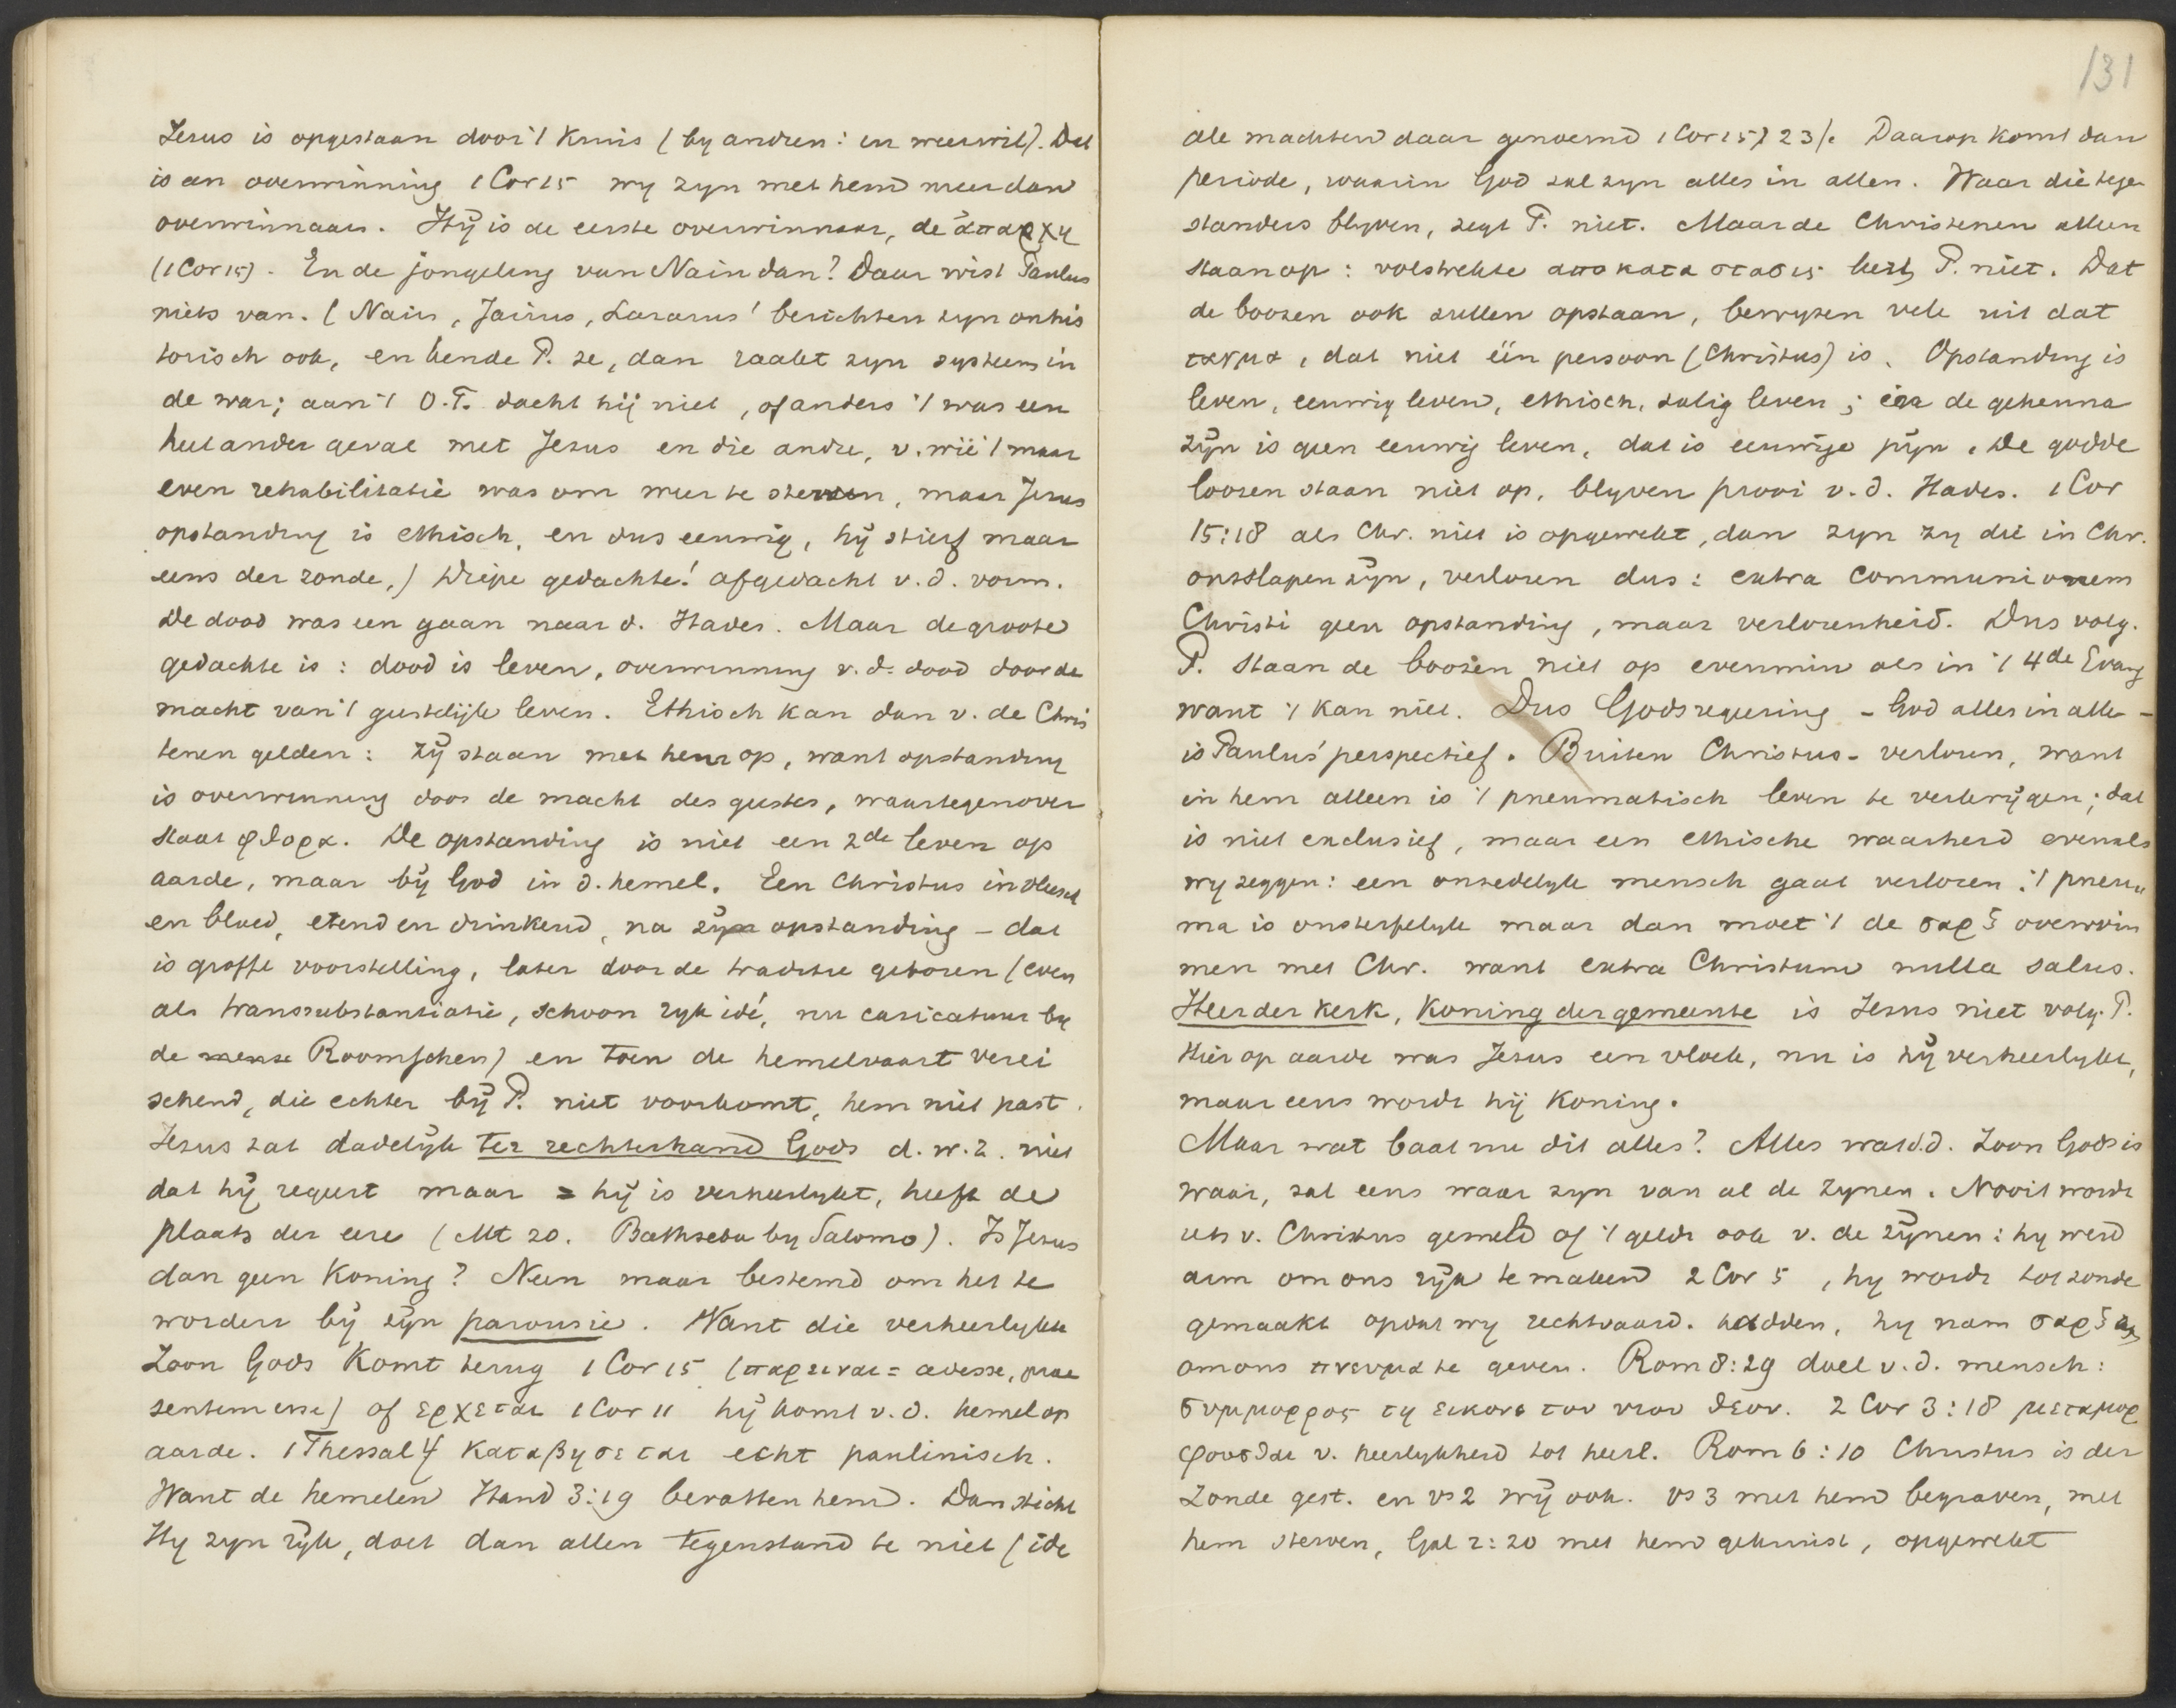 Jesus is opgestaan door 't Kruis (by andren: en weerwil). Dat
is een overwinning 1 Cor 15 wy zyn met hem meer dan
overwinnaars. Hÿ is de eerste overwinnaar, de ἀπαρχη
(1 Cor 15). En de jongeling van Nain dan? Daar wist Paulus
niets van. (Nain, Jairus, Lazarus' berichten zyn onhis
torisch ook, en kende P. ze, dan raakt zyn systeem in
de war; aan 't O.T. dacht hij niet, of anders 't was een
heel ander geval met Jezus en die andre, v. wie 't maar
even rehabilitatie was om weer te sterven, maar Jezus
opstanding is ethisch, en dus eeuwig, hÿ stierf maar
eens der zonde,) Diepe gedachte! afgedacht v.d. vorm.
De dood was een gaan naar d. Hades. Maar de groote
gedachte is: dood is leven, overwinning v.d. dood door de
macht van 't geestelijk leven. Ethisch kan dan v. de Chris
tenen gelden: zÿ staan met hem op, want opstanding
is overwinning door de macht des geestes, waartegenover
staat φθορα. De opstanding is niet een 2de leven op
aarde, maar bÿ God in d. hemel. Een Christus in vleesch
en bloed, etend en drinkend, na zÿn opstanding – dat
is groffe voorstelling, later door de traditie geboren (even
als transsubstantiatie, schoon ryk idé, nu caricatuur by
de Roomschen) en toen de hemelvaart verei
schend, die echter bÿ P. niet voorkomt, hem niet past.
Jesus zat dadelÿk ter rechterhand Gods d.w.z. niet
dat hÿ regeert maar = hÿ is verheerlykt, heeft de
plaats der eere (Mt 20. Bathseba by Salomo). Is Jezus
dan geen Koning? Neen maar bestemd om het te
worden bÿ zÿn parousie. Want die verheerlykte
Zoon Gods Komt terug 1 Cor 15 (παρειναι = adesse, prae
sentem esse) of ερχεται 1 Cor 11 hÿ komt v.d. hemel op
aarde. 1 Thessal 4 καταβησεται echt paulinisch.
Want de hemelen Hand 3:19 bevatten hem. Dan sticht
Hy zyn rÿk, doet dan allen tegenstand te niet (ide
131
ale machten daar genoemd 1 Cor 15) 23/. Daarop komt dan
periode, waarin God zal zyn alles in allen. Waar die tege
standers blyven, zegt P. niet. Maar de Christenen alleen
staan op: volstrekte αποκαταστασις leert P. niet. Dat
de boozen ook zullen opstaan, bewyzen vele uit dat
ταγμα, dat niet één persoon (Christus) is. Opstanding is
leven, eeuwig leven, ethisch, zalig leven; in de gehenna
zÿn is geen eeuwig leven, dat is eeuwige pÿn. De godde
loozen staan niet op, blyven prooi v.d. Hades. 1 Cor
15:18 als Chr. niet is opgewekt, dan zyn zy die in Chr.
ontslapen zÿn, verloren dus: extra communionem
Christi geen opstanding, maar verlorenheid. Dus volg.
P. staan de boozen niet op evenmin als in 't 4de Evang
want 't kan niet. Dus Godsregeering – God alles in alle –
is Paulus' perspectief. Buiten Christus – verloren, want
in hem alleen is 't pneumatisch leven te verkrÿgen; dat
is niet exclusief, maar een ethische waarheid evenals
wy zeggen: een onzedelyk mensch gaat verloren: 't pneu
ma is onsterfelyk maar dan moet 't de σαρξ overwin
men met Chr. want extra Christum nulla salus.
Heer der Kerk, Koning der gemeente is Jesus niet volg. P.
Hier op aarde was Jesus een vloek, nu is hÿ verheerlykt,
maar eens wordt hÿ Koning.
Maar wat baat nu dit alles? Alles wat v.d. Zoon Gods is
waar, zal eens waar zyn van al de Zynen. Nooit wordt
iets v. Christus gemeld of 't geldt ook v. de zÿnen: hy werd
arm om ons rÿk te maken 2 Cor 5, hy wordt tot zonde
gemaakt opdat wy rechtvaard. hadden, hy nam σαρξ
om ons πνευμα te geven. Rom 8:29 doel v.d. mensch:
συμμορφος τη εικονι του υιου θεου. 2 Cor 3:18 μεταμορ
φουσθαι v. heerlykheid tot heerl. Rom 6:10 Christus is der
Zonde gest. en vs 2 wÿ ook. vs 3 met hem begraven, met
hem sterven, Gal 2:20 met hem gekruist, opgewekt